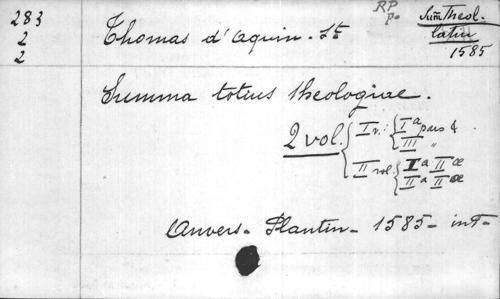 283
2
2
Thomas d'Aquin. St
RP
p.
Sum Theol.
latin
1585
Summa totius theologiae.
2 vol. { I v. : { I a pars &
III "
II vol. { I a II æ
II a II æ
Anvers - Plantin - 1585 - in f° -